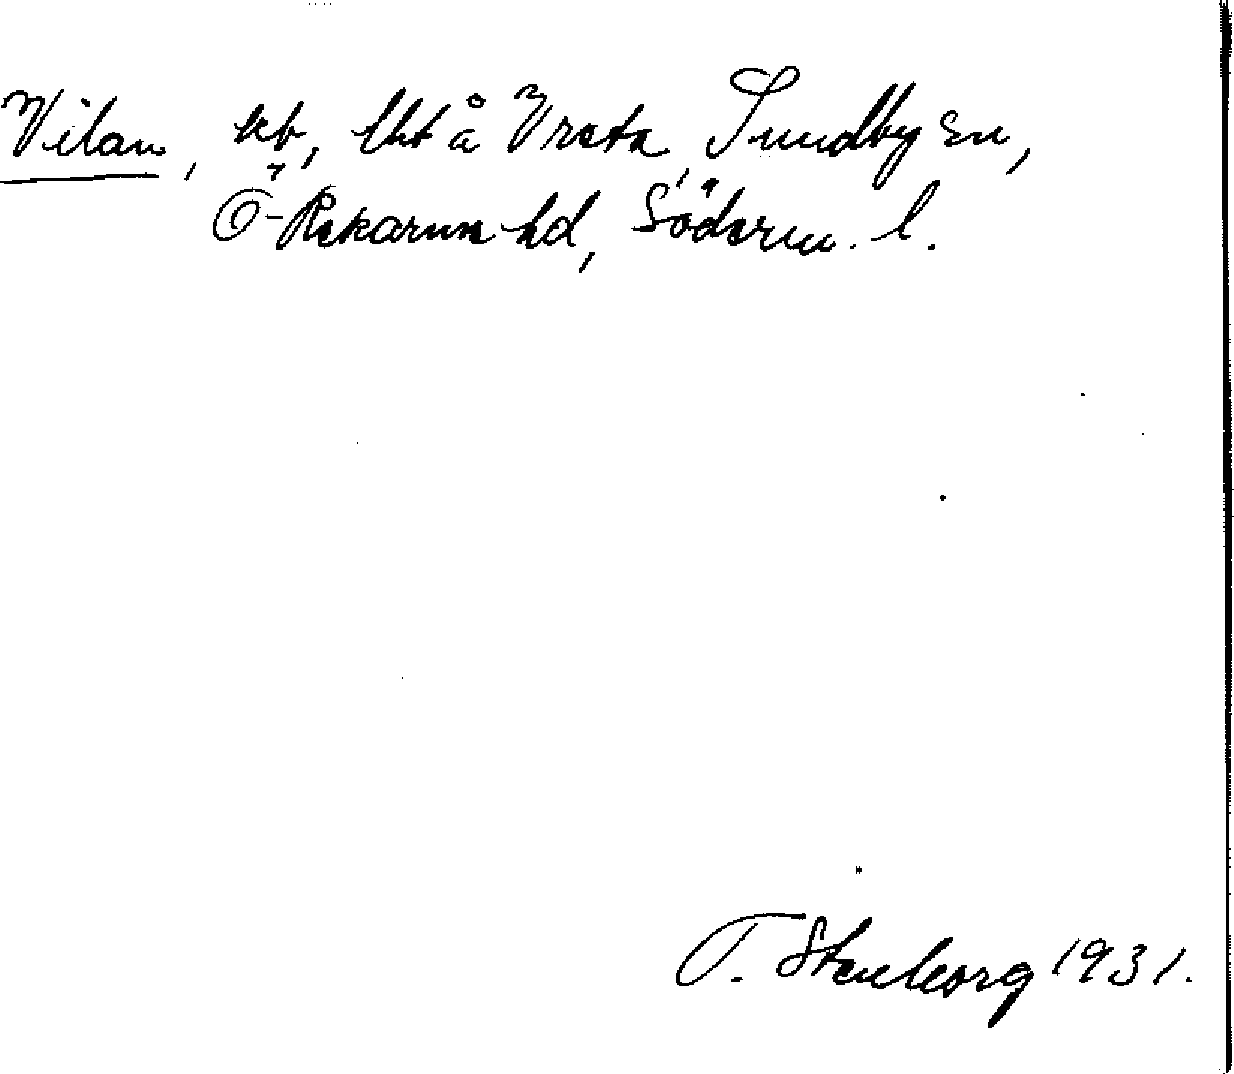 Vilan, kt, lht å Vreta, Sundby sn,
Ö-Rekarne hd, Söderm. l.
T. Stenborg 1931.